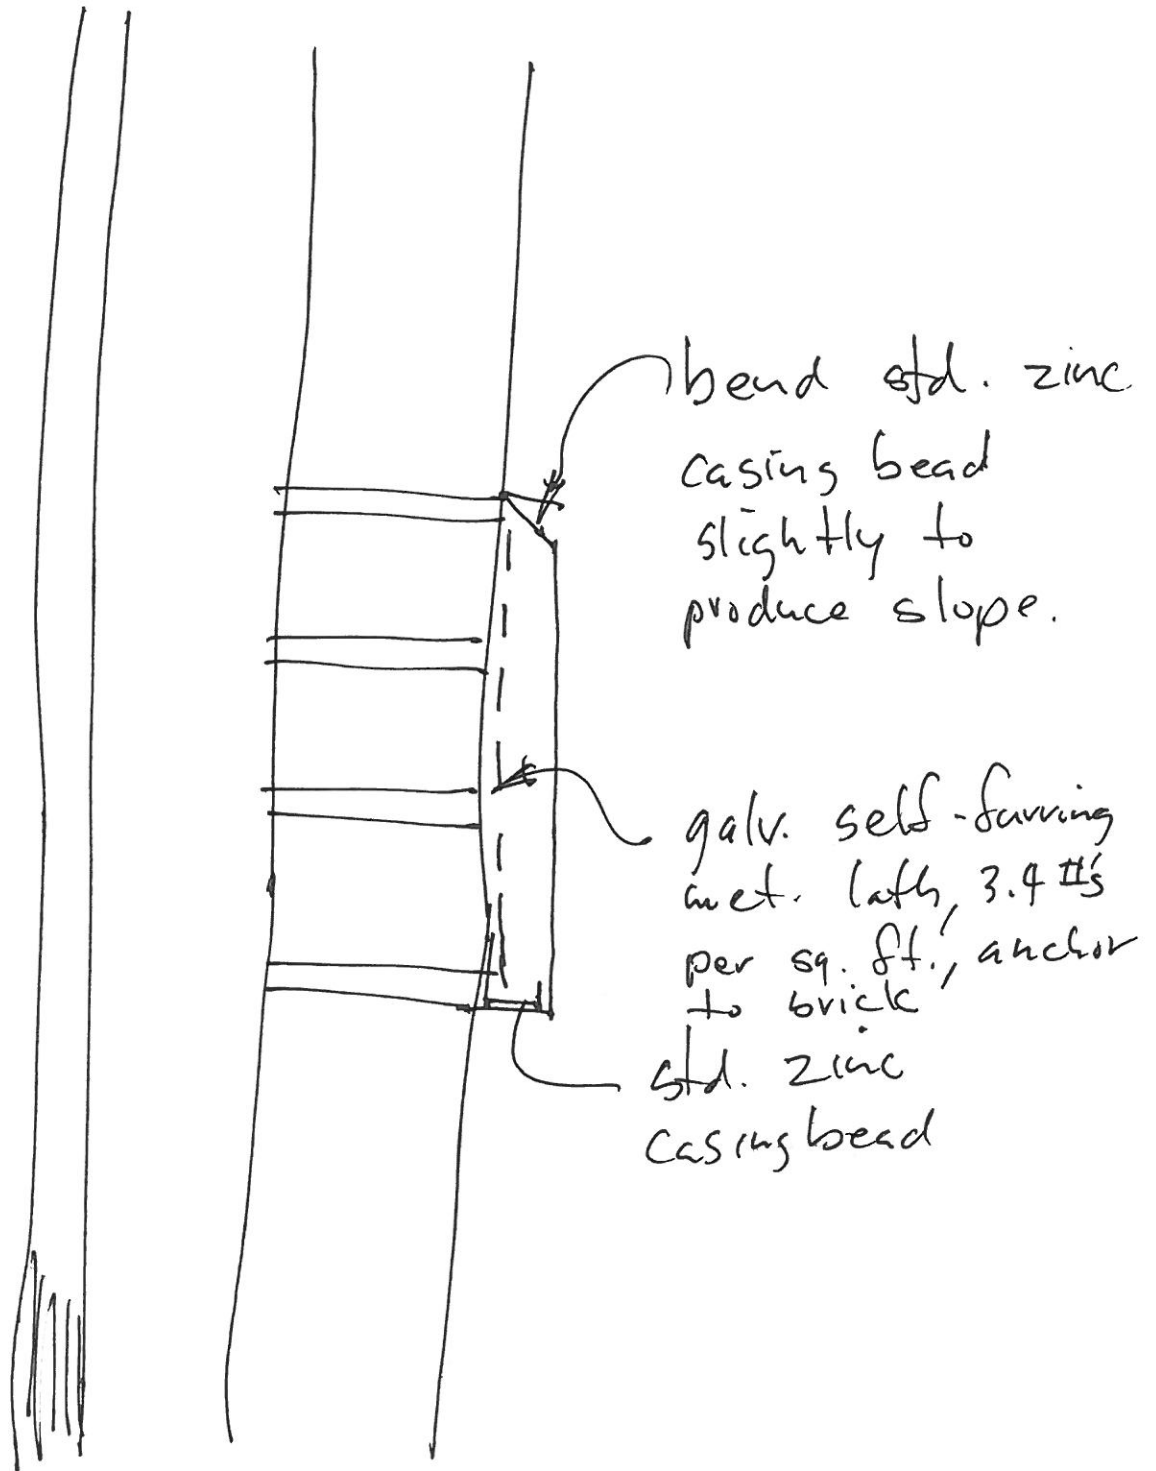 bend std. zinc
casing bead
slightly to
produce slope.
galv. self-furring
met. lath, 3.4 #'s
per sq. ft., anchor
to brick
std. zinc
casing bead